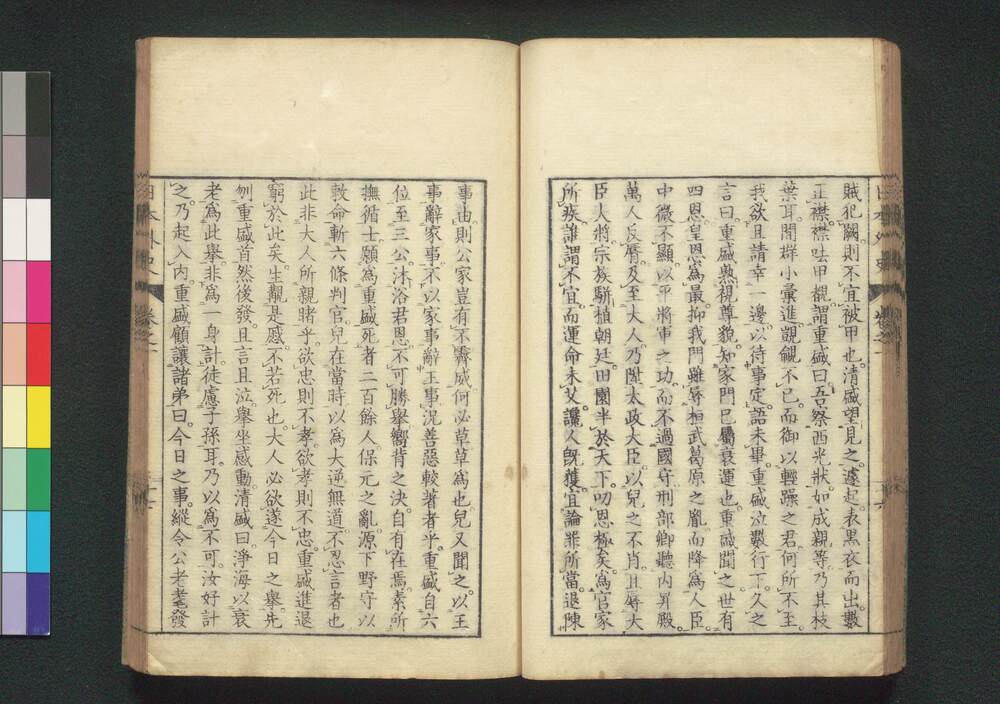 賊犯闕則不宜被甲也。清盛望見之。遽起。表黑衣而出。數
正襟。襟呿甲襯。謂重盛曰。吾察西光狀。如成親等。乃其枝
葉耳。聞群小彙進覬覦不已。而御以輕躁之君。何所不至。
我欲且請幸一邊。以待事定。語未畢。重盛泣數行下。久之
言曰。重盛熟視尊貌。知家門已屬衰運也。重盛聞之。世有
四恩。皇恩為最。抑我門雖辱桓武葛原之胤。而降為人臣。
中微不顯。以平將軍之功。而不過國守。刑部卿聽內昇殿。
萬人反脣。及至大人。乃陞太政大臣。以兒之不肖。且辱大
臣大將。宗族駢植朝廷。田園半於天下。叨恩極矣。為官家
所族。誰謂不宜。而運命未艾。讒人既獲。宜論罪所當。退陳
事由。則公家豈有不霽威。何必草草為也。兒又聞之。以王
事辭家事。不以家事辭王事。況善惡較著者乎。重盛自六
位至三公。沐浴君恩。不可勝舉。嚮背之決。自有在焉。素所
撫循士。願為重盛死者二百餘人。保元之亂。源下野守以
敕命斬六條判官。兒在當時。以為大逆無道。不忍言者也
此非大人所親睹乎。欲忠則不孝。欲孝則不忠。重盛進退
窮於此矣。生覯是慼。不若死也。大人必欲遂今日之舉。先
刎重盛首。然後發。且言且泣。舉坐感動。清盛曰。淨海以衰
老為此舉。非為一身計。徒慮子孫耳。乃以為不可。汝好計
之。乃起入內。重盛顧讓諸弟曰。今日之事。縱令公老耄發
日本外史 卷之一